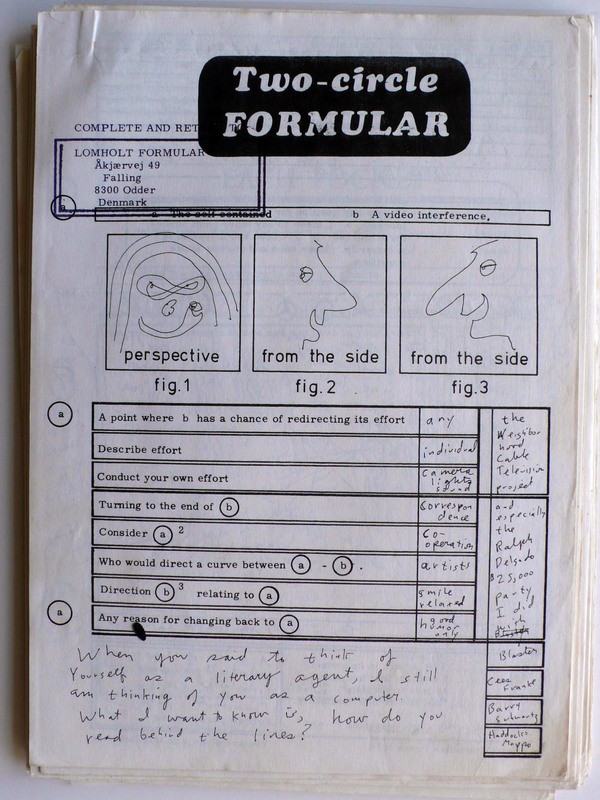 Two-circle
FORMULAR
COMPLETE AND RET
LOMHOLT FORMULAR
Åkjærvej 49
Falling
8300 Odder
Denmark
a
a The self contained b A video interference.
perspective
from the side
from the side
fig.1
fig.2
fig.3
a
A point where b has a chance of redirecting its effort any
Describe effort individual
Conduct your own effort camera lights sound
Turning to the end of b correspondence
Consider a 2 co-operation
Who would direct a curve between a - b . artists
Direction b 3 relating to a smile related
a
Any reason for changing back to a good humor only
the
Neighbor
hood
Cable
Television
project
and
especially
the
Ralph
Delgado
$25,000
party
I did
with
Blaster
Cees
Franke
Barry
Schwartz
Haddocks
When you said to think of
Yourself as a literary agent, I still
am thinking of you as a computer.
What I want to know is, how do you
read behind the lines?